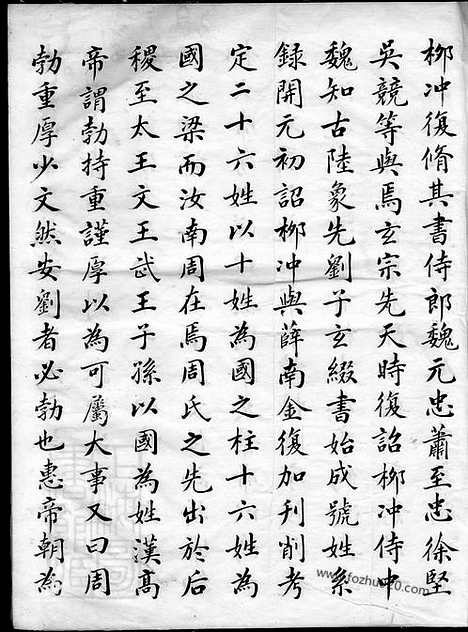 柳冲復脩其書侍郎魏元忠蕭至忠徐堅
吳競等與焉玄宗先天時復詔柳冲侍中
魏知古陸象先劉子玄綴書始成號姓系
録開元初詔柳冲與薛南金復加刊削考
定二十六姓以十姓為國之柱十六姓為
國之梁而汝南周在焉周氏之先出於后
稷至太王文王武王子孫以國為姓漢高
帝謂勃持重謹厚以為可屬大事又曰周
勃重厚少文然安劉者必勃也惠帝朝為
www.fozhu920.com